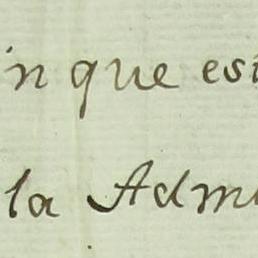 in que est
la Adm